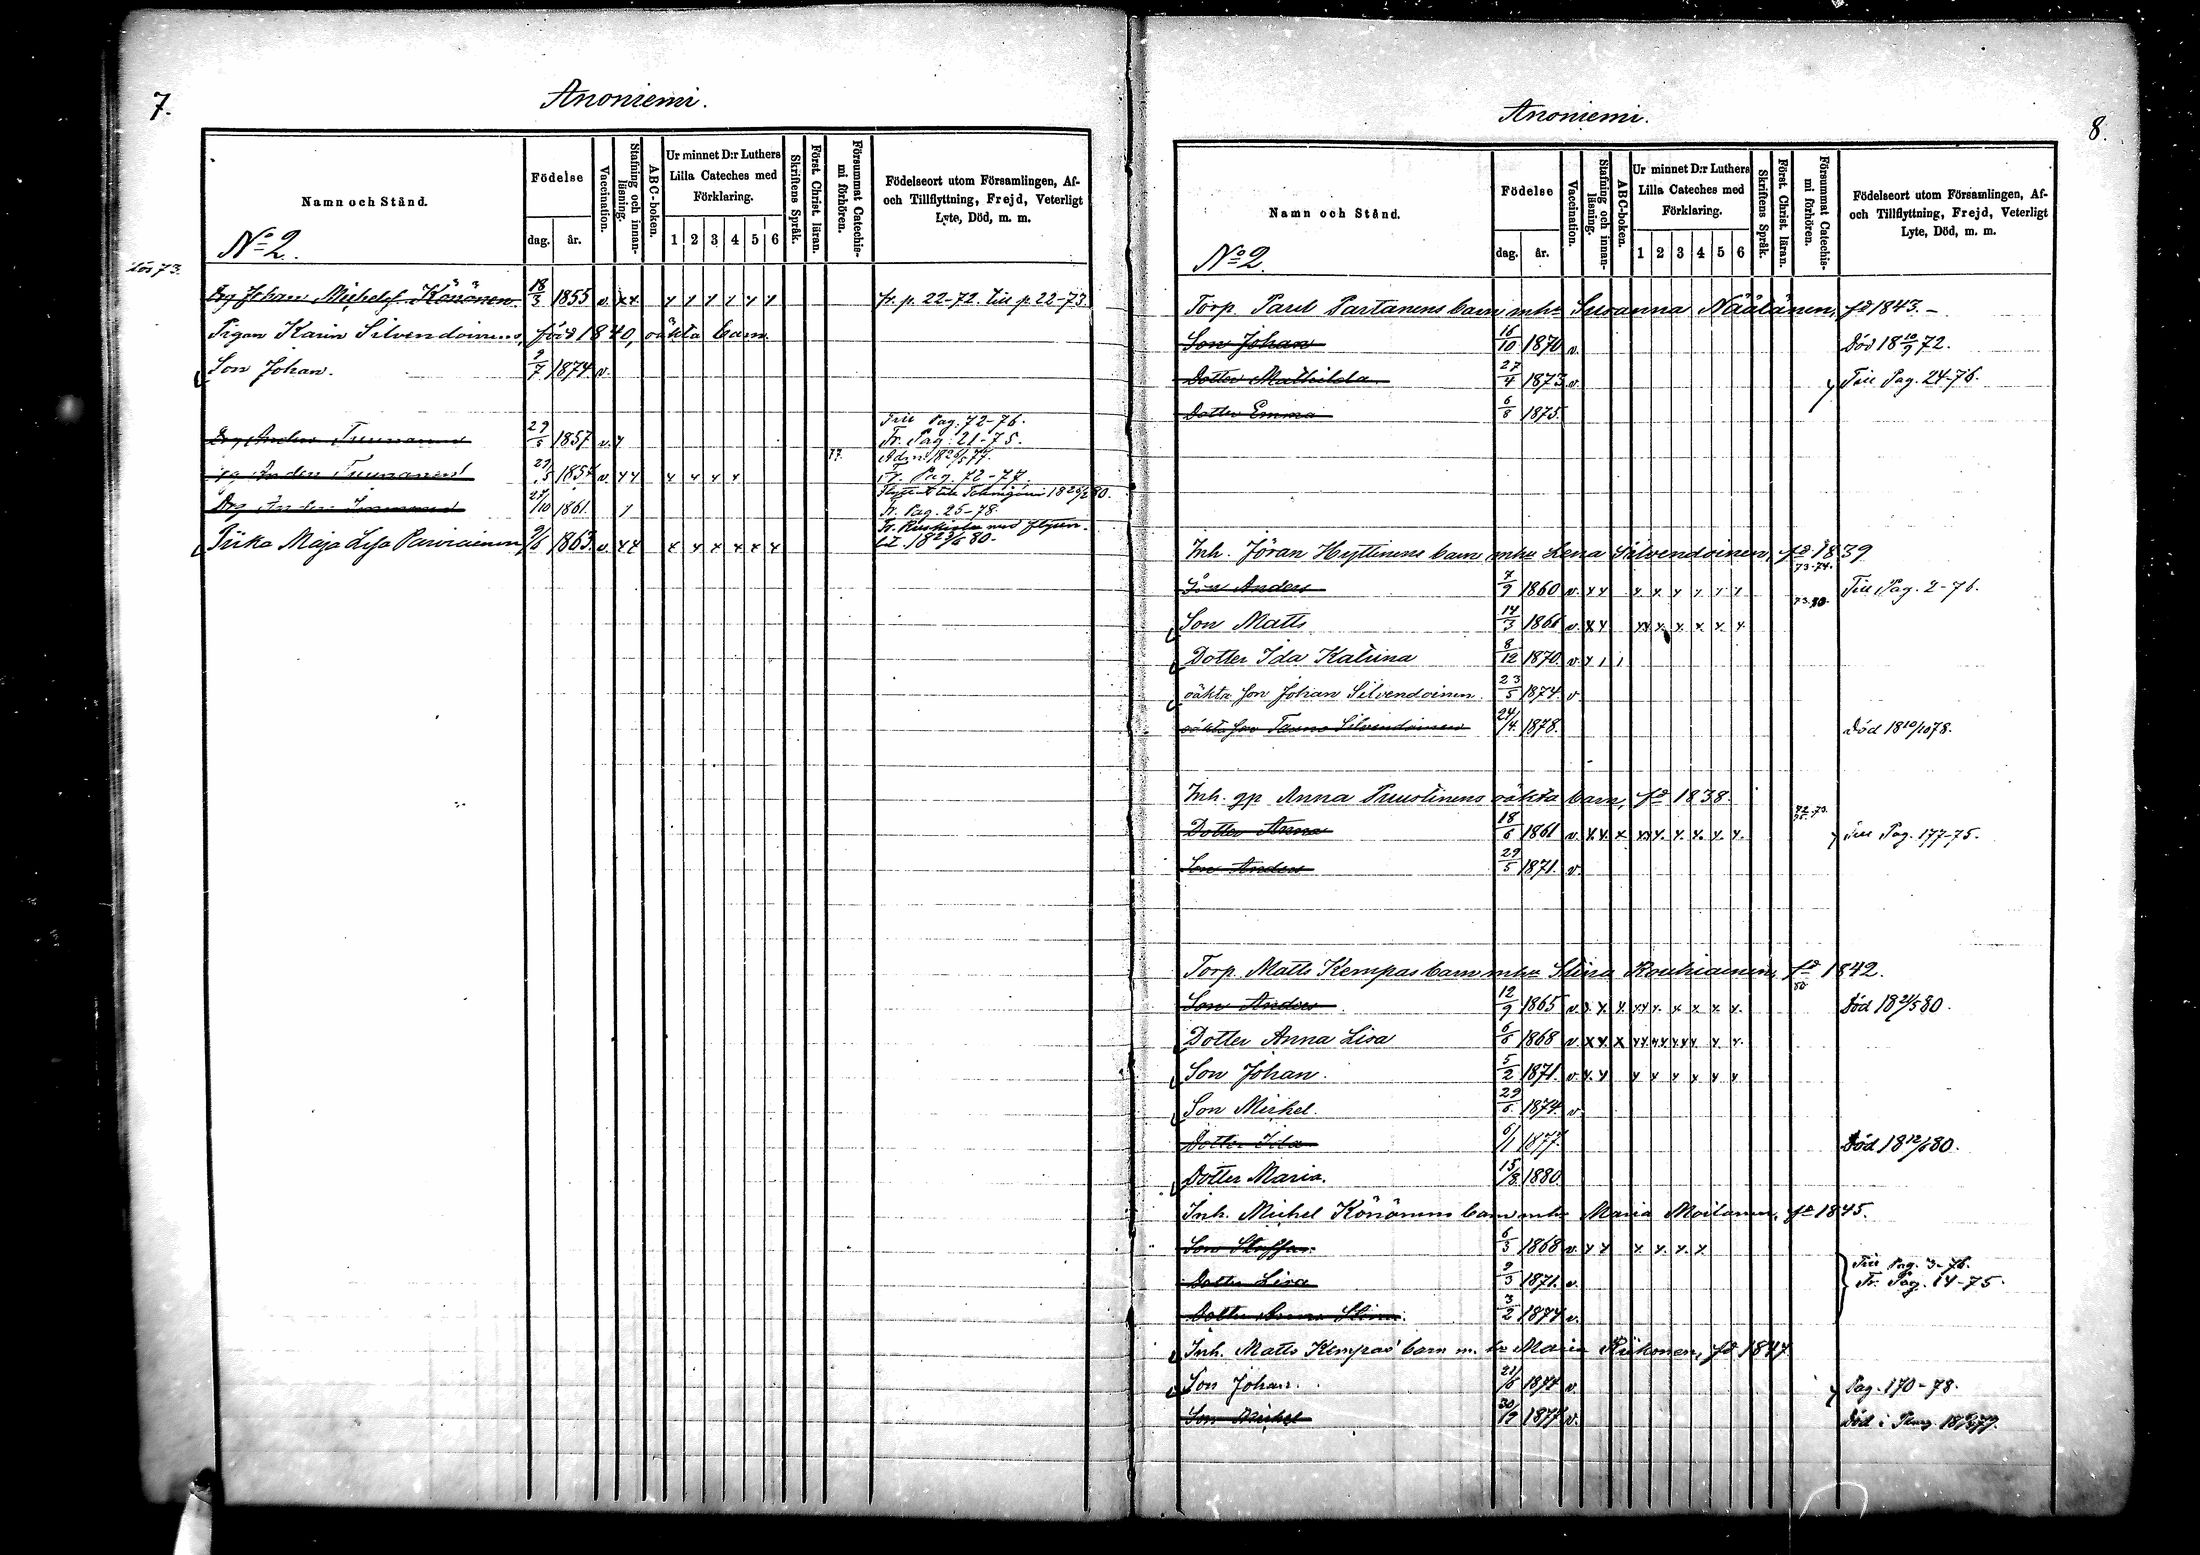 7.
Anoniemi.
Namn och Stånd.
Födelse
dag. år.
Vaccination.
Stafning och innan-läsning.
ABC-boken.
Ur minnet D:r Luthers Lilla Cateches med Förklaring.
1 2 3 4 5 6
Skriftens Språk.
Först. Christ. läran.
Försummat Catechis-mi förhören.
Födelseort utom Församlingen, Af- och Tillflyttning, Frejd, Veterligt Lyte, Död, m. m.
No 2.
Drg Johan Michelsf Könönen 18/3 1855 v. x x x x x x x x fr. p. 22-72. till p 22-73
Pigan Karin Silvendoinens, född 1840, oäkta barn.
Son Johan. 9/7 1874. v.
Till Pag. 72-76.
Drg Anders Tuunanen 29/5 1857 v. x Fr. Pag. 21-75.
77.
Drg Anders Tuunanen 29/5 1857 v. x x x x x x Fr. Pag. 72-77.
Drg Anders 27/10 1861. Fr. Pag. 25-78.
Piika Maja Lisa Parviainen 9/6 1863. v. x x x x x x x x
8.
Anoniemi.
Namn och Stånd.
Födelse
dag. år.
Vaccination.
Stafning och innan-läsning.
ABC-boken.
Ur minnet D:r Luthers Lilla Cateches med Förklaring.
1 2 3 4 5 6
Skriftens Språk.
Först. Christ. läran.
Försummat Catechis-mi förhören.
Födelseort utom Församlingen, Af- och Tillflyttning, Frejd, Veterligt Lyte, Död, m. m.
No 2.
Torp. Paul Partanens barn mhu Susanna Näälänen, fd 1843.-
Son Johan 16/10 1870 v. Död 18 10/9 72.
Dotter Mathilda 27/4 1873 v. Till Pag. 24-76.
Dotter Emma 6/8 1875.
Inh. Jöran Hyttinens barn mhu Lena Silvendoinen, fd 1839
73-74.
Son Anders 7/9 1860 v. x x x x x x x x Till Pag. 2-76.
Son Matts 14/3 1866 v. x x x x x x x x x
Dotter Ida Katrina 8/12 1870. v. x
oäkta son Johan Silvendoinen 23/5 1874. v
oäkta son Silvendoinen 24/4 1878. Död 18 10/10 78.
Inh. gp Anna Puustinens oäkta barn, fd 1838.
Dotter Anna 18/6 1861 v. x x x x x x x x x x till Pag. 177-75.
Son Anders 29/5 1871. v.
Torp. Matts Kempas barn mhu Stina Rouhiainen, fd 1842.
80
Son Anders 12/9 1865 v. x x x x x x x x x x Död 18 21/5 80.
Dotter Anna Lisa 6/6 1868 v. x x x x x x x x x x x x
Son Johan. 5/2 1871. v. x x x x x x x x
Son Michel. 29/6 1874. v
Dotter Ida 6/1 1877. Död 18 12/6 80.
Dotter Maria. 15/8 1880
Inh. Michel Könönens barn mhu Maria Moilanen, fd 1845.
Son Staffan. 6/3 1868 v. x x x x x x
Till Pag. 3-76.
Dotter Lisa 9/3 1871. v. Fr. Pag. 14-75.
Dotter Anna Stina. 3/2 1874 v.
Inh. Matts Kempas' barn m. hu Maria Riikonen, fd 1847
Son Johan. 21/6 1874 v. Pag. 170-78.
Son Michel 30/9 1877. v. Död i